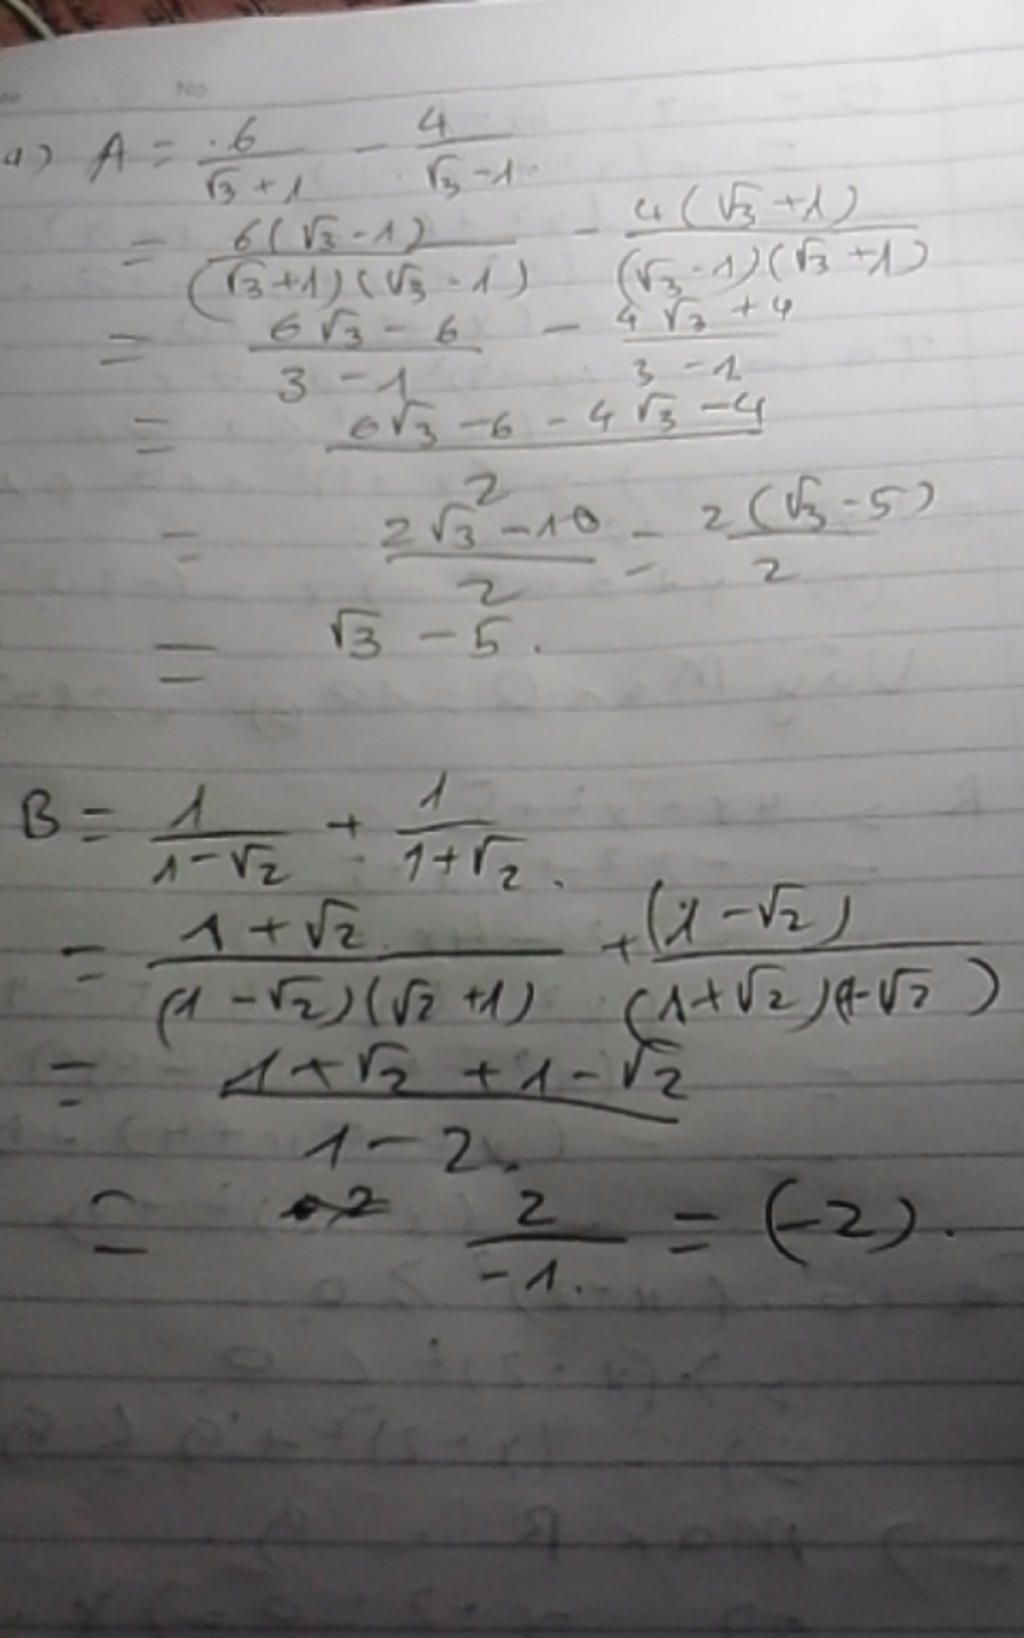 No
a) A = 6/(√3 + 1) - 4/(√3 - 1)
= 6(√3 - 1)/((√3+1)(√3 - 1)) - 4(√3 + 1)/((√3 - 1)(√3 + 1))
= (6√3 - 6)/(3 - 1) - (4√3 + 4)/(3 - 1)
= (6√3 - 6 - 4√3 - 4)/2
= (2√3 - 10)/2 = 2(√3 - 5)/2
= √3 - 5.
B = 1/(1-√2) + 1/(1+√2).
= (1+√2)/((1-√2)(√2+1)) + (1-√2)/((1+√2)(1-√2))
= (1+√2+1-√2)/(1-2).
= 2/(-1). = (-2).